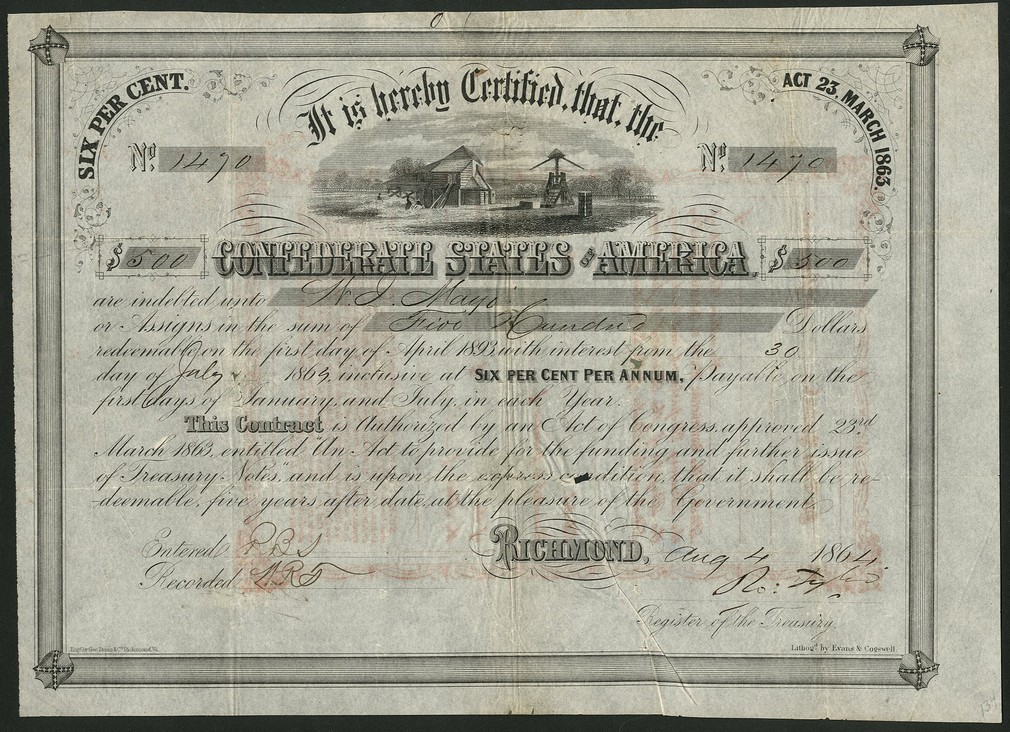 SIX PER CENT.
It is hereby Certified, that, the
ACT 23, MARCH 1863.
No. 1470
No. 1470
$500
CONFEDERATE STATES OF AMERICA,
$500
are indebted unto W. J. Mayo
or Assigns in the sum of Five Hundred Dollars
redeemable, on the first day of April 1893 with interest from the 30
day of July 1863, inclusive at SIX PER CENT PER ANNUM, Payable on the
first days of January, and July, in each Year.
This Contract is Authorized by an Act of Congress, approved 23rd
March 1863, entitled "An Act to provide for the funding and further issue
of Treasury Notes" and is upon the express condition, that it shall be, re-
deemable, five years after date, at the pleasure of the Government,
Entered
RICHMOND, Aug 4 1864
Recorded
Ro: Tyler
Register of the Treasury
Lithog'd by Evans & Cogswell